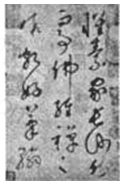 懷素家長沙幼而
事佛經禪之
暇頗好筆翰